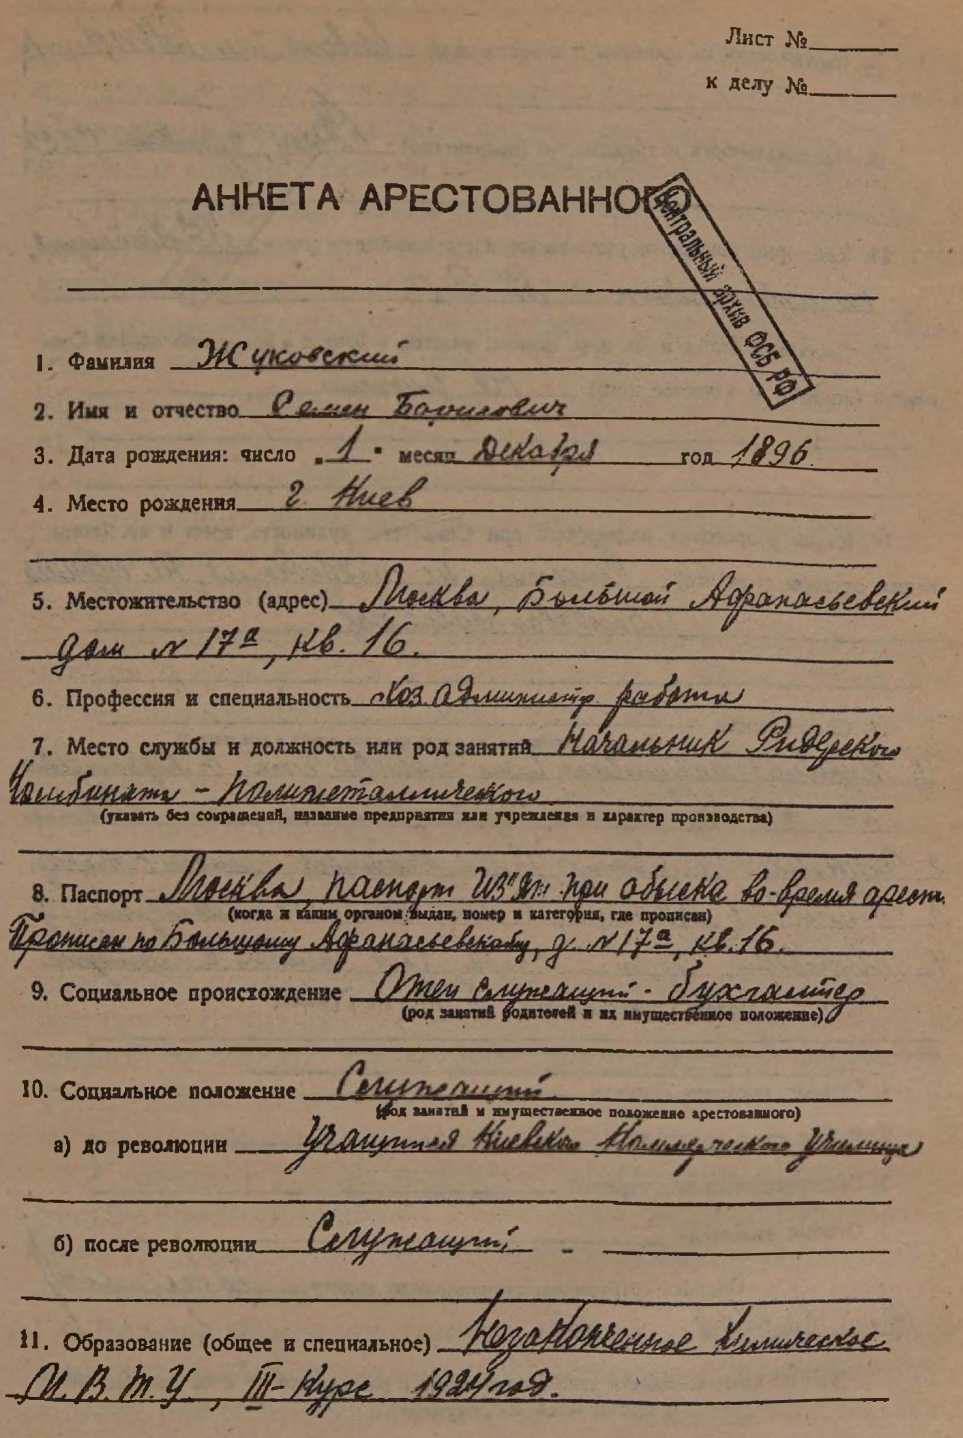 Лист №
к делу №
АНКЕТА АРЕСТОВАННОГО
Центральный архив ФСБ РФ
1. Фамилия Жуковский
2. Имя и отчество Семен Борисович
3. Дата рождения: число „1" месяц Декабря год 1896.
4. Место рождения г. Киев
5. Местожительство (адрес) Москва, Большой Афанасьевский
дом № 17а, кв. 16.
6. Профессия и специальность Хоз. администр работа
7. Место службы и должность или род занятий Начальник Ридерского
Комбината - Полиметаллического
(указать без сокращений, название предприятия или учреждения и характер производства)
8. Паспорт Москва, паспорт из'ят при обыске во-время арест.
(когда и каким органом выдан, номер и категория, где прописан)
Прописан по Большому Афанасьевскому, д. № 17а, кв. 16.
9. Социальное происхождение Отец служащий - бухгалтер
(род занятий родителей и их имущественное положение)
10. Социальное положение Служащий
(род занятий и имущественное положение арестованного)
а) до революции Учащийся Киевского Коммерческого Училища
б) после революции Служащий -
11. Образование (общее и специальное) Незаконченное Химическое
М.В.Т.У., III- Курс 1924 год.